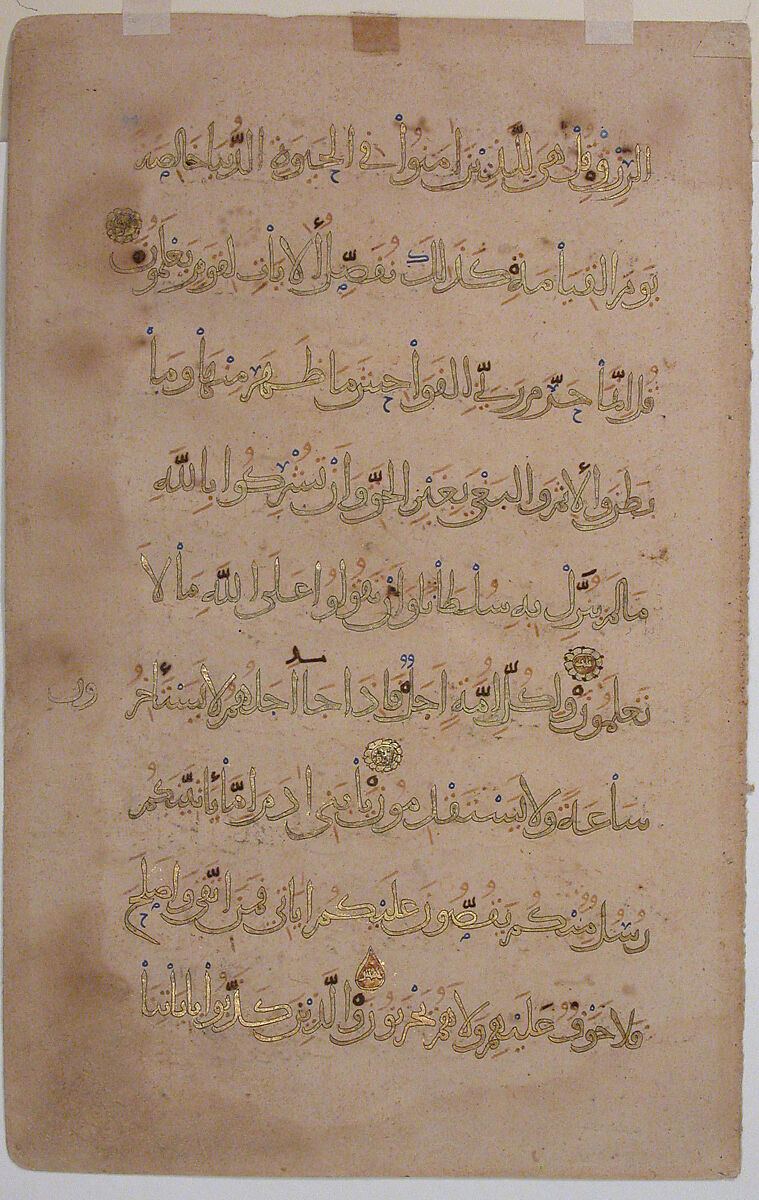 الرِّزْقِ قُلْ هِىَ لِلَّذِينَ اٰمَنُواْ فِى الْحَيَوٰةِ الدُّنْيَا خَالِصَةً
يَوْمَ الْقِيَامَةِ كَذَلِكَ نُفَصِّلُ الْأَيَاتِ لِقَوْمٍ يَعْلَمُونَ
قُلْ إِنَّمَا حَرَّمَ رَبِّيَ الْفَوَاحِشَ مَا ظَهَرَ مِنْهَا وَمَا
بَطَنَ وَالْإِثْمَ وَالْبَغْيَ بِغَيْرِ الْحَقِّ وَأَن تُشْرِكُوا بِاللَّهِ
مَا لَمْ يُنَزِّلْ بِهِ سُلْطَانًا وَأَن تَقُولُوا عَلَى اللَّهِ مَا لَا
تَعْلَمُونَ وَلِكُلِّ أُمَّةٍ أَجَلٌ فَإِذَا جَاءَ أَجَلُهُمْ لَا يَسْتَأْخِرُ ون
سَاعَةً وَلَا يَسْتَقْدِمُونَ يَابَنِي اٰدَمَ إِمَّا يَأْتِيَنَّكُمْ
رُسُلٌ مِّنكُمْ يَقُصُّونَ عَلَيْكُمْ اٰيَاتِي فَمَنِ اتَّقَى وَأَصْلَحَ
فَلَا خَوْفٌ عَلَيْهِمْ وَلَا هُمْ يَحْزَنُونَ وَالَّذِينَ كَذَّبُوا بِأَيَاتِنَا